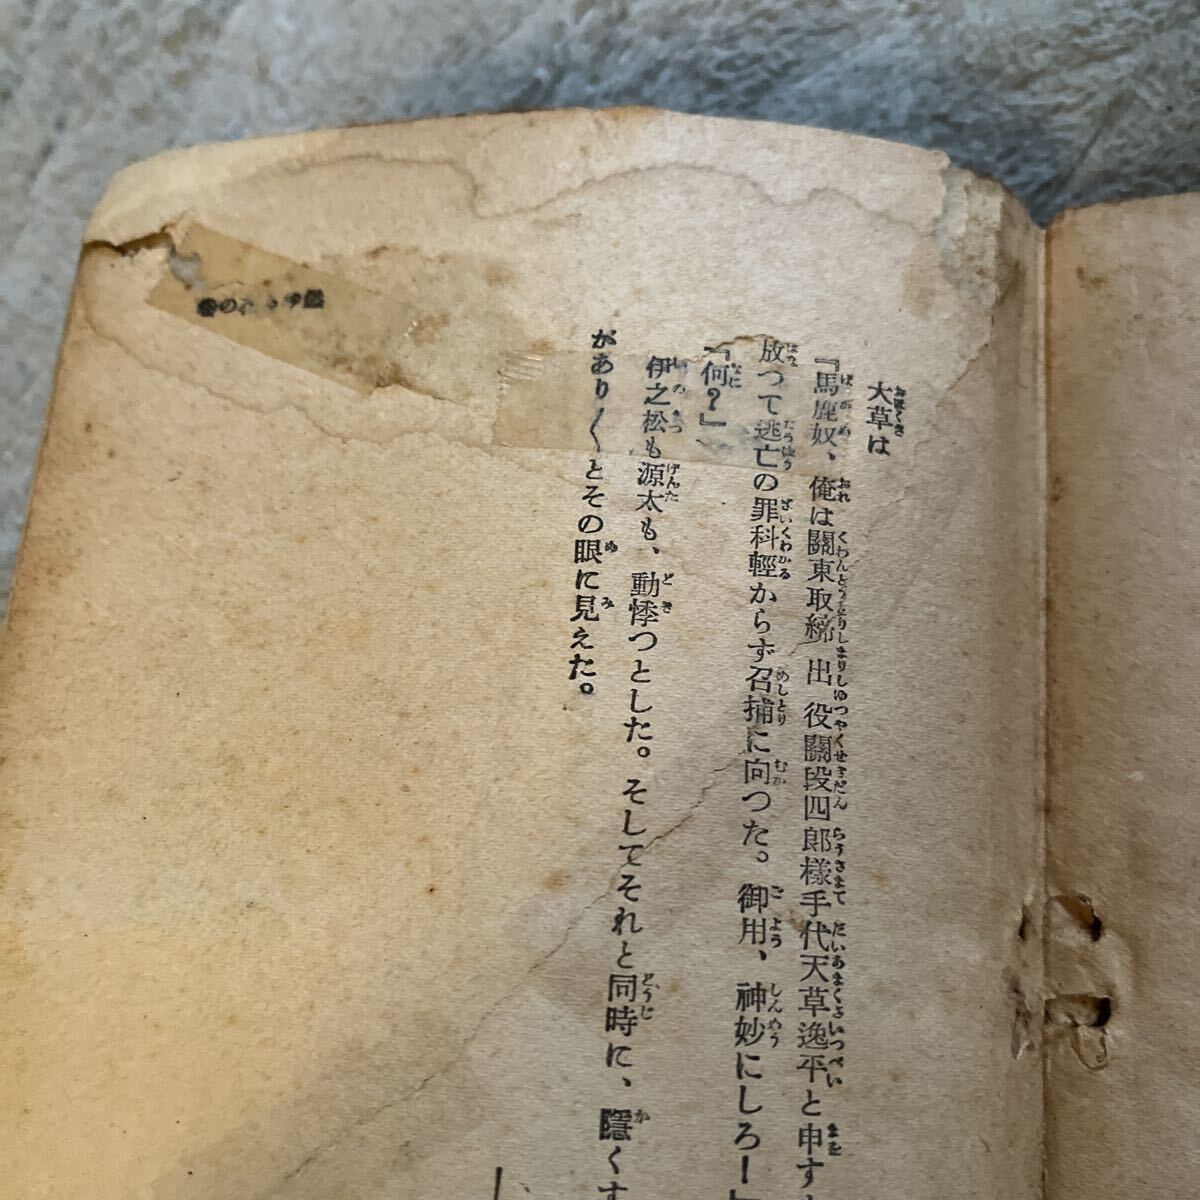 大草は
『馬鹿奴、俺は關東取締出役關段四郎様手代天草逸平と申す
放つて逃亡の罪科輕からず召捕に向つた。御用、神妙にしろ—』
『何?』
伊之松も源太も、動悸つとした。そしてそれと同時に、隱くす
があり〱とその眼に見えた。